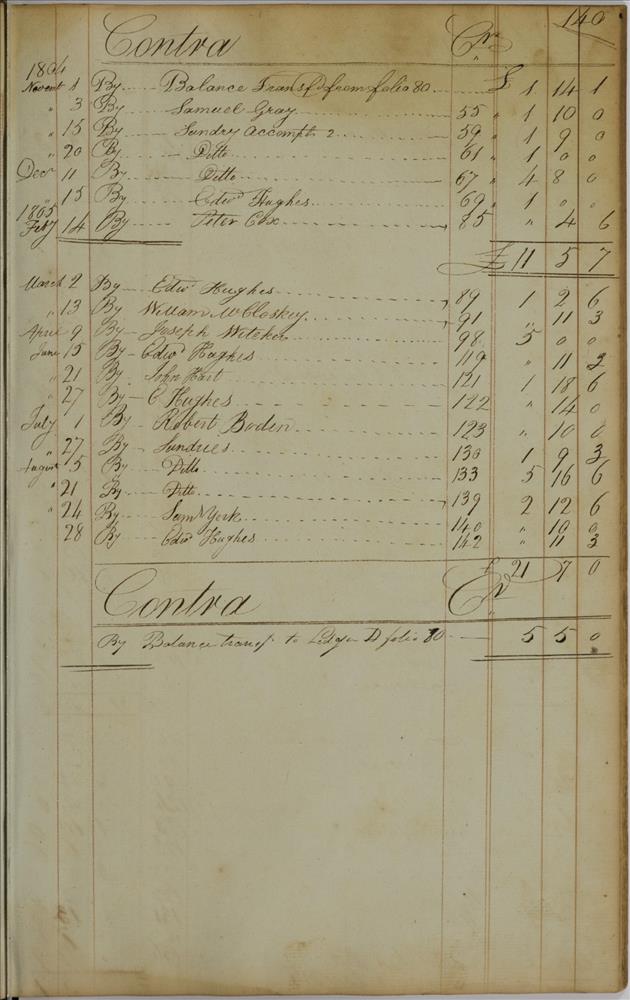 140
Contra Cr
1804
Novemr 1 By Balance Transfd from folio 80 £ 1 14 1
" 3 By Samuel Gray 55 " 1 10 0
" 15 By Sundry Accompts 2 59 " 1 9 0
" 20 By Ditto 61 " 1 0 0
Decr 11 By Ditto 67 " 4 8 0
" 15 By Edwd Hughes 69 " 1 0 0
1805
Feby 14 By Peter Cox 85 " 4 6
£ 11 5 7
March 2 By Edwd Hughes 89 1 2 6
" 13 By William McCloskey 91 " 11 3
April 9 By Joseph 98 5 0 0
June 15 By Edwd Hughes 119 " 11 3
" 21 By John Hart 121 1 18 6
" 27 By C Hughes 122 " 14 0
July 1 By Robert Boden 123 " 10 0
" 27 By Sundries 130 1 9 3
August 5 By Ditto 133 5 16 6
" 21 By Ditto 139 2 12 6
" 24 By Saml York 140 " 10 0
" 28 By Edwd Hughes 142 " 11 3
£ 21 7 0
Contra Cr
By Balance transfr to Ledger D folio 80 5 5 0